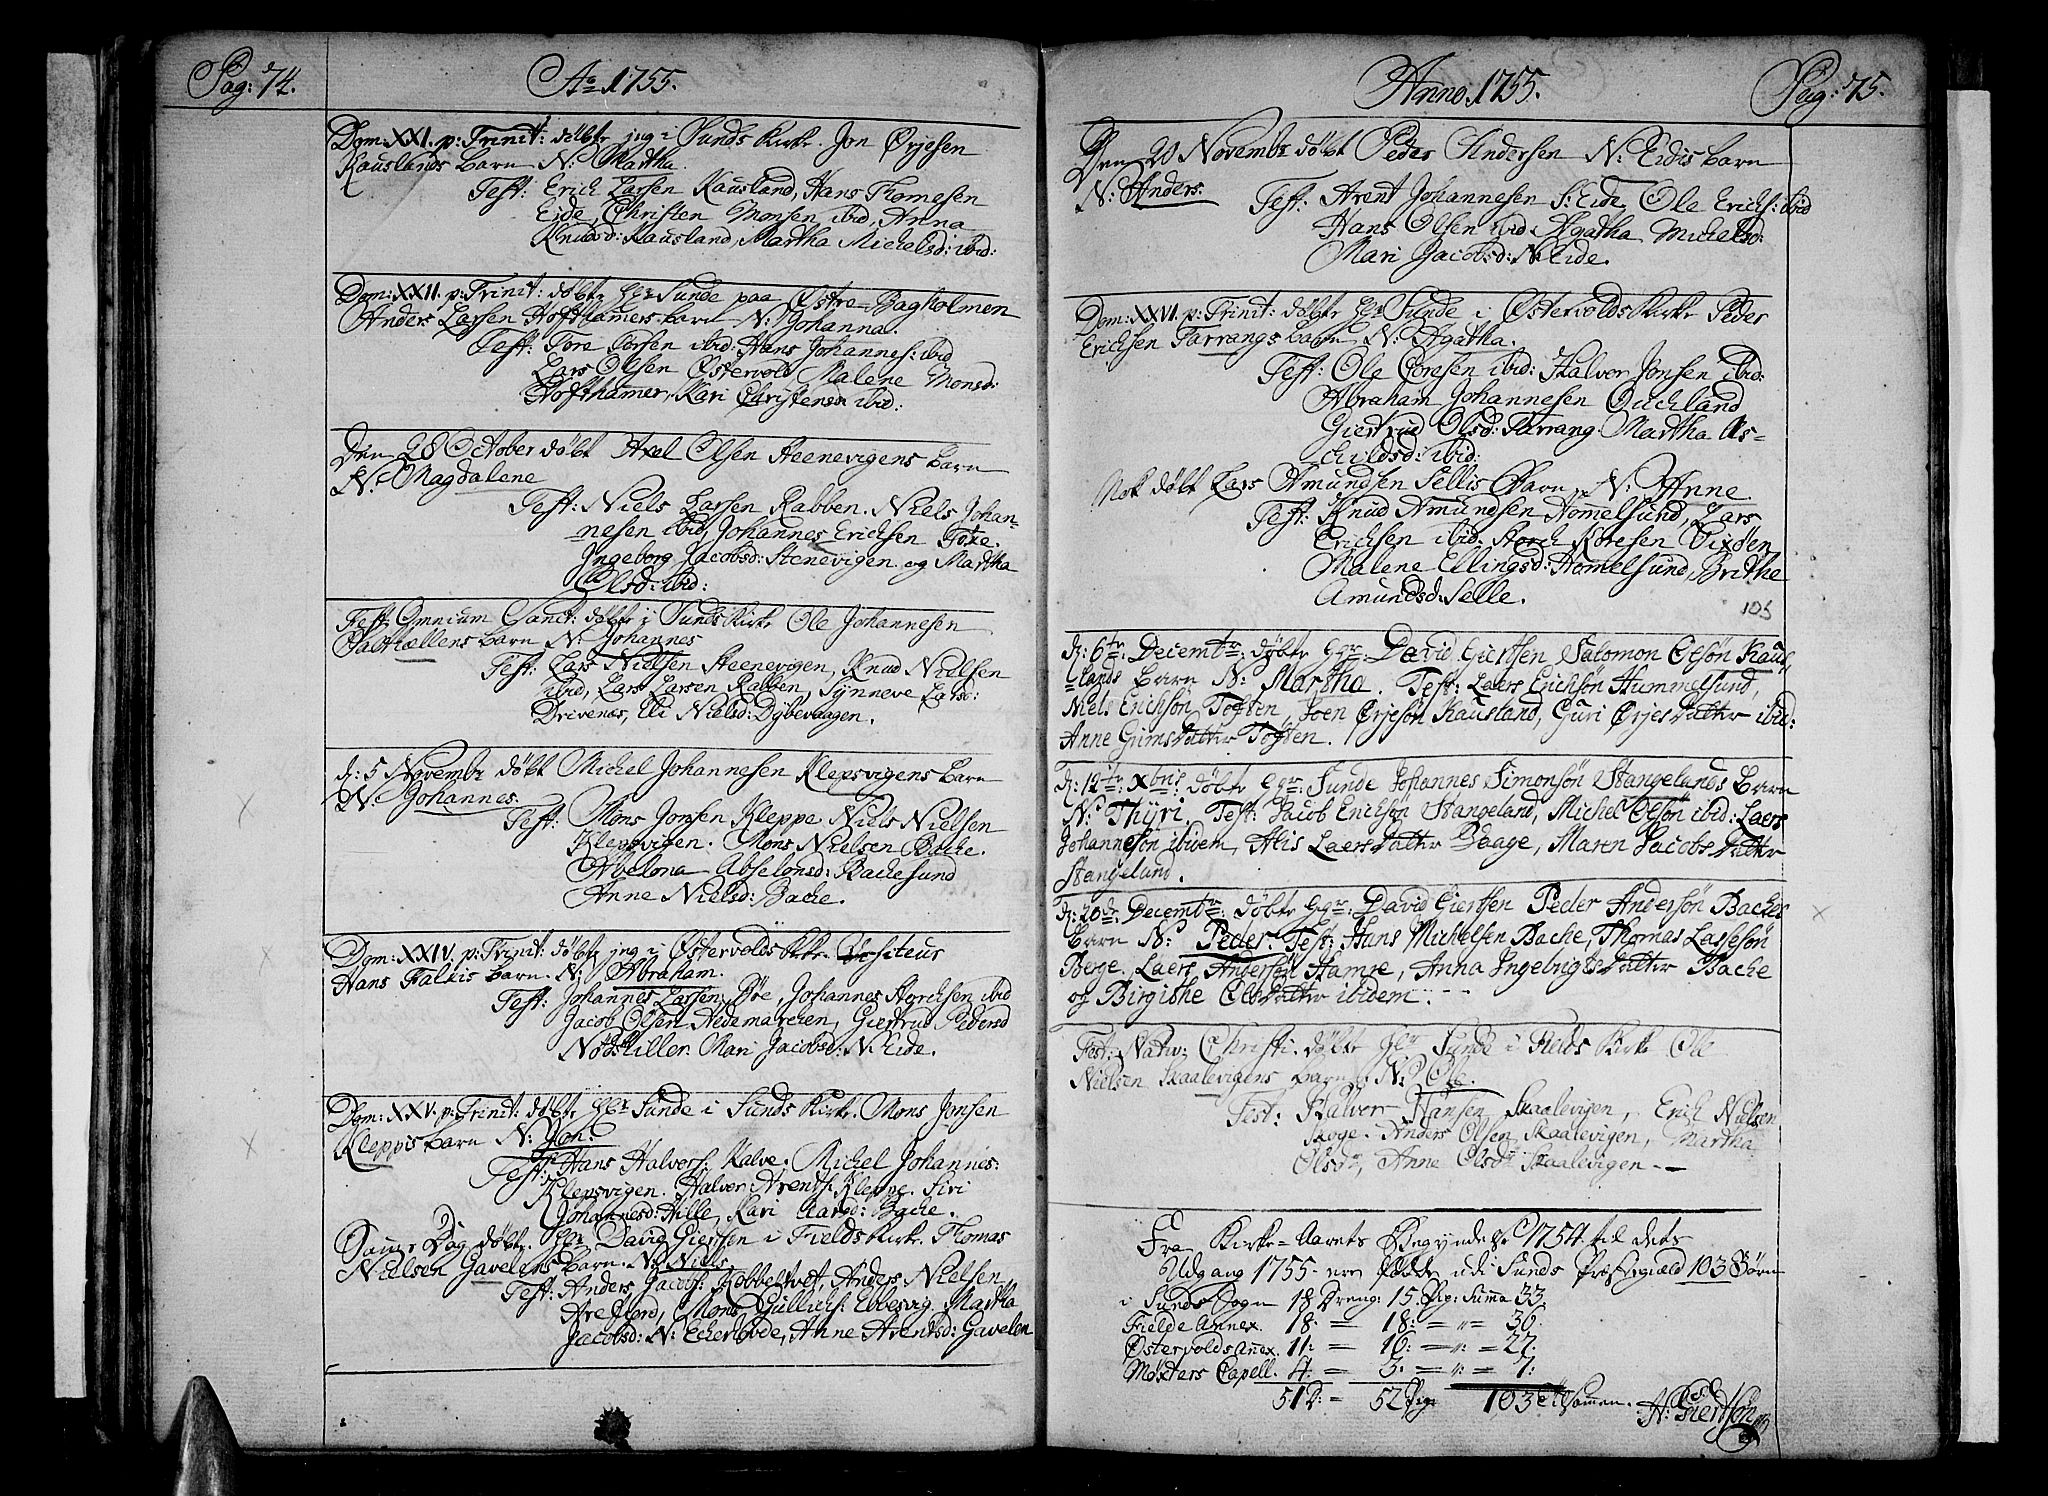 Pag: 74.
Ao 1755.
Dom: XXI. p: Trinit: døbte jeg i Sunds Kirke Jon Ørjesen
Kauslands barn N: Martha
Test: Erich Larsen Kausland, Hans Thomesen
Eide, Christen Monsen ibid: Anna
Knudsd: Kausland, Martha Michelsd: ibid:
Dom: XXII. p: Trinit: døbte Hr Sunde paa Østre-Bagholmen
Anders Larsen Hofthamers barn N: Johanna.
Test: Tore Torsen ibid: Hans Johannes: ibid
Lars Olsen Østervold Malene Monsd:
Hofthamer, Kari Christensd: ibid:
Den 28 October døbt Axel Olsen Steenevigens barn
N: Magdalene
Test: Niels Larsen Rabben. Niels Johan-
nesen ibid, Johannes Erichsen Toxe.
Ingeborg Jacobsd: Stenevigen og Martha
Olsd: ibid:
Fest: Omnium Sanct: døbte i Sunds Kirke Ole Johannesen
barn N: Johannes
Test: Lars Nielsen Steenevigen, Knud Nielsen
ibid, Lars Larsen Rabben, Synneve Larsd:
Drivenæs, Eli Nielsd: Dybevaagen.
d: 5 Novembr døbt Michel Johannesen Klepsvigens barn
N: Johannes.
Test: Mons Jonsen Kleppe Niels Nielsen
Klepsvigen. Mons Nielsen Bache.
Abelona Abselonsd: Bachesund
Anne Nielsd: Bache.
Dom: XXIV. p: Trinit: døbte jeg i Østervolds Kirke
Hans Falkis barn. N: Abraham.
Test: Johannes Larsen Bøe, Johannes Storchsen ibid
Jacob Olsen Hedemarcken, Giertrud Pedersd
Nodskiller. Mari Jacobsd: N: Eide.
Dom: XXV. p: Trinit: døbte Hr Sunde i Sunds Kirke. Mons Jonsen
Kleppis barn N: Jon.
Test: Hans Halvors: Kalve. Michel Johannes:
Klepsvigen. Halvor Arents: Kleppe. Siri
Johannesd: Hille, Kari Clarsd: Bache.
Samme Dag døbte Hr David Giertsen i Fields Kirke. Thomas
Nielsen Gavelens barn. N: Niels
Test: Anders Jacobs: Kobbeltvet, Anders Nielsen
Mons Gullichs: Ebbesvig Martha
Jacobsd: N: Echerhovde, Anne Arentsd: Gavelen
Anno 1755.
Pag: 75.
Den 20 Novembr døbt Peder Andersen N: Eidis barn
N: Anders.
Test: Arent Johannesen S: Eide, Ole Erichs: ibid
Hans Olsen ibid Agatha Michelsd:
Mari Jacobsd: N: Eide.
Dom: XXVI. p: Trinit: døbte Hr Sunde i Østervolds Kirke Peder
Erichsen Tarrangs barn N: Agatha.
Test: Ole Toresen ibid: Halvor Jonsen ibid:
Abraham Johannesen Duchland
Giertrud Olsd: Tarrang. Martha As-
childsd: ibid:
Nok døbt Lars Amundsen Sellis Barn N: Anne
Test: Knud Amundsen Homelsund, Lars
Erichsen ibid: Storch Koresen Vixøen
Malene Ellingsd: Homelsund, Brithe
Amundsd: Selle.
103
d: 6te Decembr: døbte Hr: David Giertsen Salomon Olsøn Kaus-
lands barn N: Martha. Test: Laers Erichsøn Hummelsund,
Niels Erichsøn Toften, Joen Ørjesøn Kausland, Guri Ørjesdatter ibid:
Anne Gunisdatter Toften.
d: 12te: Xbris døbte Hr: Sunde Johannes Simonsøn Stangelands barn
N: Thyri. Test: Jacob Erichsøn Stangeland, Michel Olsøn ibid: Laers
Johannesøn ibidem, Alis Laersdatter Vaage, Maren Jacobsdatter
Stangeland.
d: 20de Decembr: døbte Hr: David Giertsen Peder Andersøn Baches
barn N: Peder. Test: Hans Michelsen Bache, Thomas Lassesøn
Berge, Laers Andersøn Hamre, Anna Ingebrigtsdatter Bache
og Birgithe Olsdatter ibidem.
Fest: Nativ: Christi. døbte Hr Sunde i Fields Kirke Ole
Nielsen Skaalevigens barn N: Ole.
Test: Halver Hansen Skaalevigen, Erich Nielsen
Skoge. Anders Olsen Skaalevigen, Martha
Olsdr, Anne Olsdr Skaalevigen. —
Fra Kirke-Aarets Begyndelse 1754 til dets
Udgang 1755 ere fødde udi Sunds Præstegiæld 103 Børn
i Sunds Sogn 18 Dreng: 15. Pig: Summa 33.
Fielde Annex. 18: = 18: = " = 36.
Østervolds Anex. 11: = 16: = " = 27.
Møxters Capell. 4 = 3: = " = 7:
51 D: = 52 Pig: 103